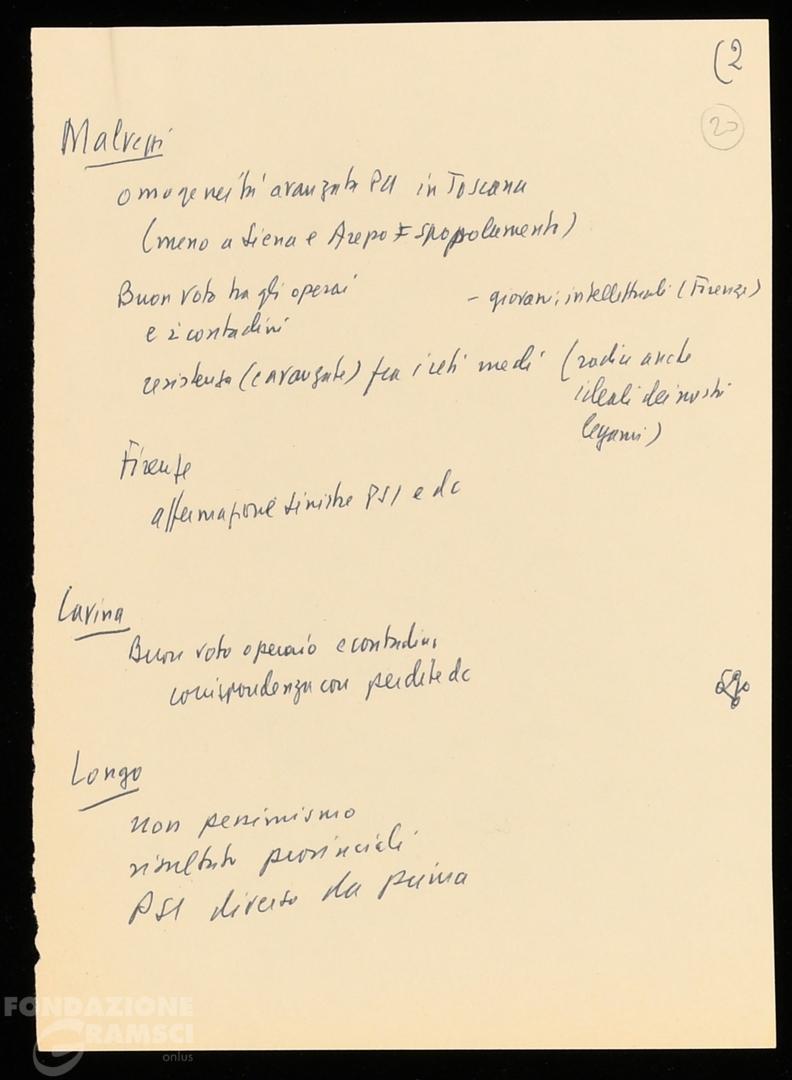 (2
20
Malvezzi
omogeneità avanzata PCI in Toscana
(meno a Siena e Arezzo = spopolamento)
Buon voto tra gli operai
e i contadini
- giovani, intellettuali (Firenze)
resistenza (e avanzate) fra i ceti medi (radici anche
ideali dei nostri
legami)
Firenze
affermazione sinistre PSI e dc
Lavina
Buon voto operaio e contadino
corrispondenza con perdite dc
Longo
non pessimismo
risultato provinciali
PSI diverso da prima
FONDAZIONE
GRAMSCI
onlus